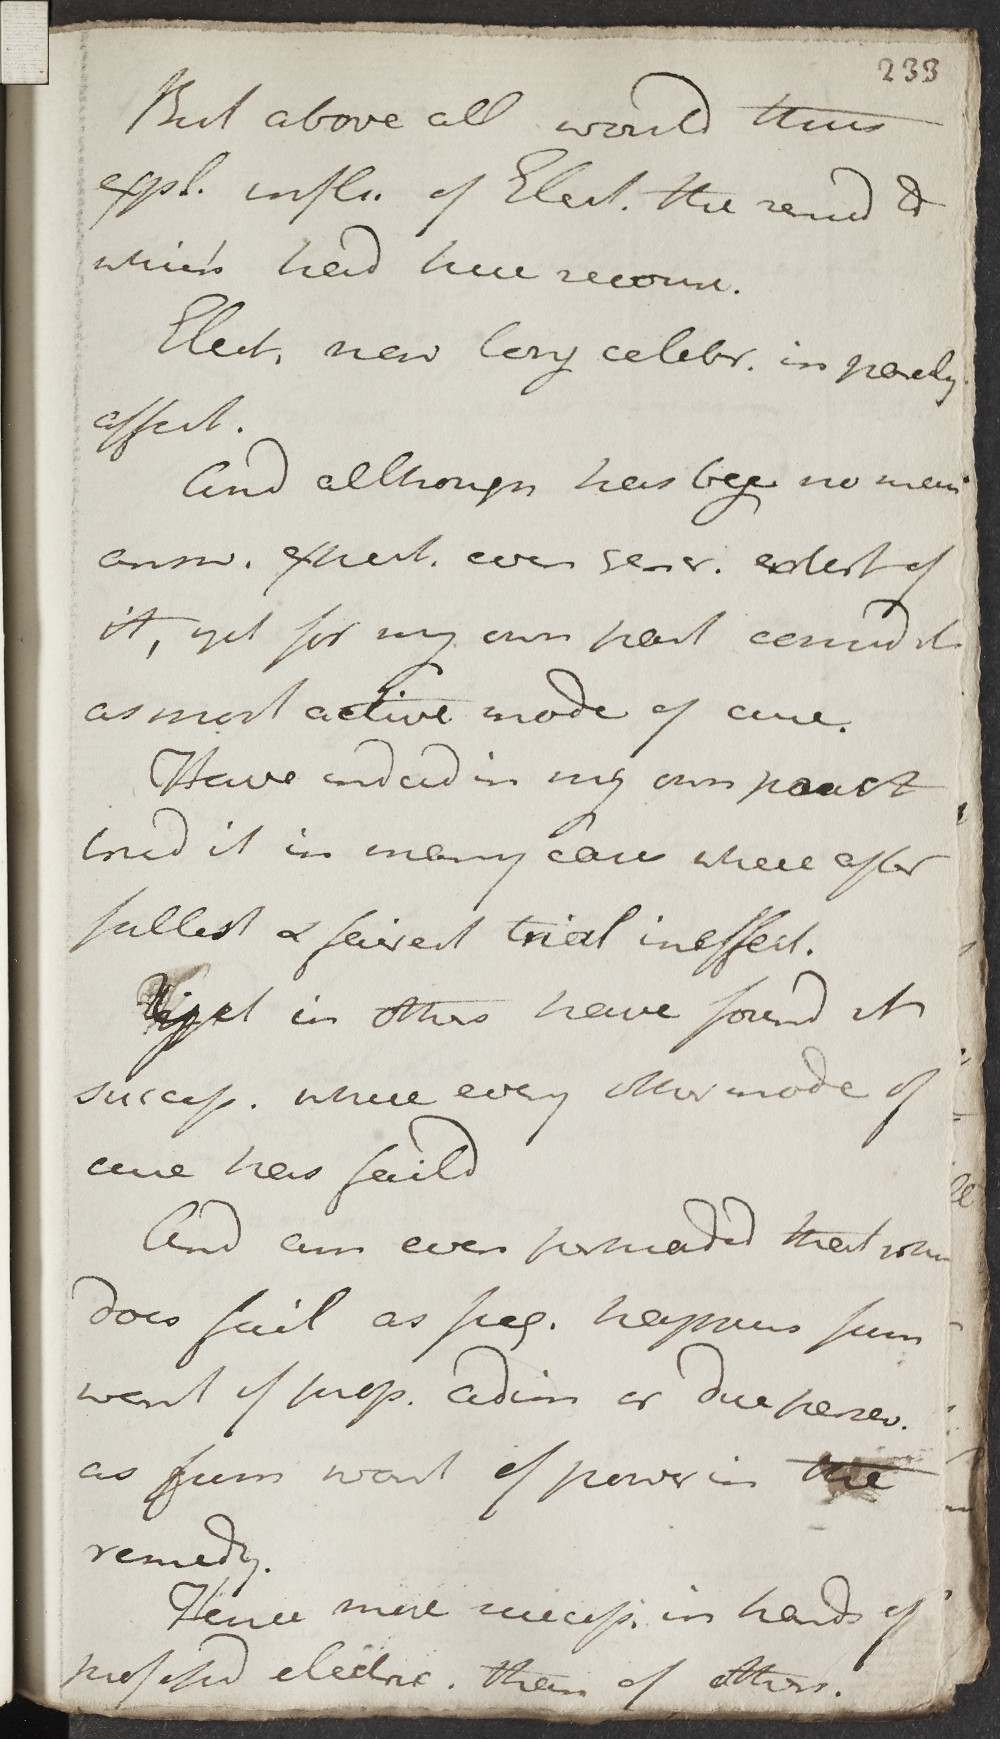 233
But above all would thus
expl. influ. of Elect. the remed to
which had here recour.
Elect. now long celebr. in paraly
affect.
And although has by no mean
answ. expect. even gener. extent of
it, yet for my own part consid it
as most active mode of cure.
Have indeed in my own pract
tried it in many cases where after
fullest & fairest trial ineffect.
Yet in others have found it
success. where every other mode of
cure has faild
And am even persuaded that when
does fail as freq. happens from
want of prop. admin or due persev.
as from want of power in the
remedy.
Hence more success. in hands of
professd electric. than of others.